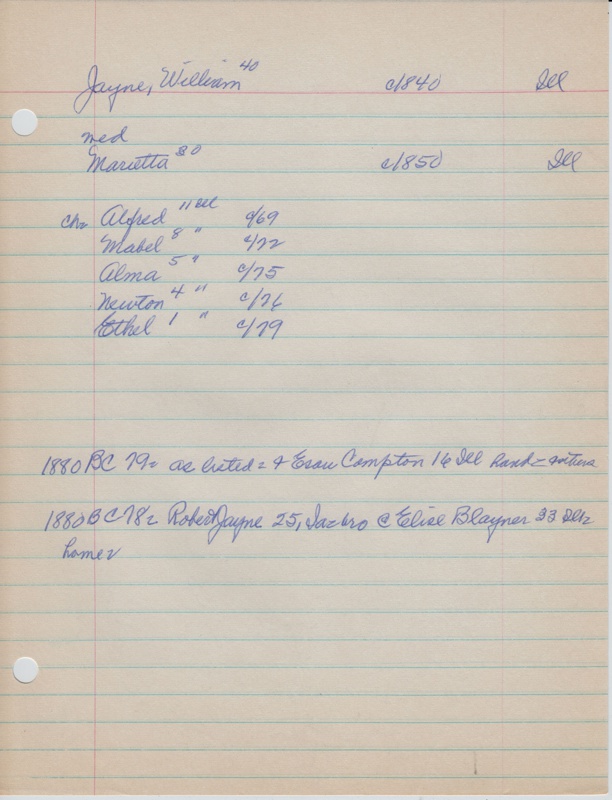 Jayne, William 40 c/1840 Ill
med
Marietta 30 c/1850 Ill
ch= Alfred 11 Ill c/69
Mabel 8 " c/72
Alma 5 " c/75
Newton 4 " c/76
Ethel 1 " c/79
1880 BC 79= as listed = & Esau Compton 16 Ill hand =
1880 BC 78= Robert Jayne 25, Ia = bro @ Elise Blayner 33 Ill=
home=